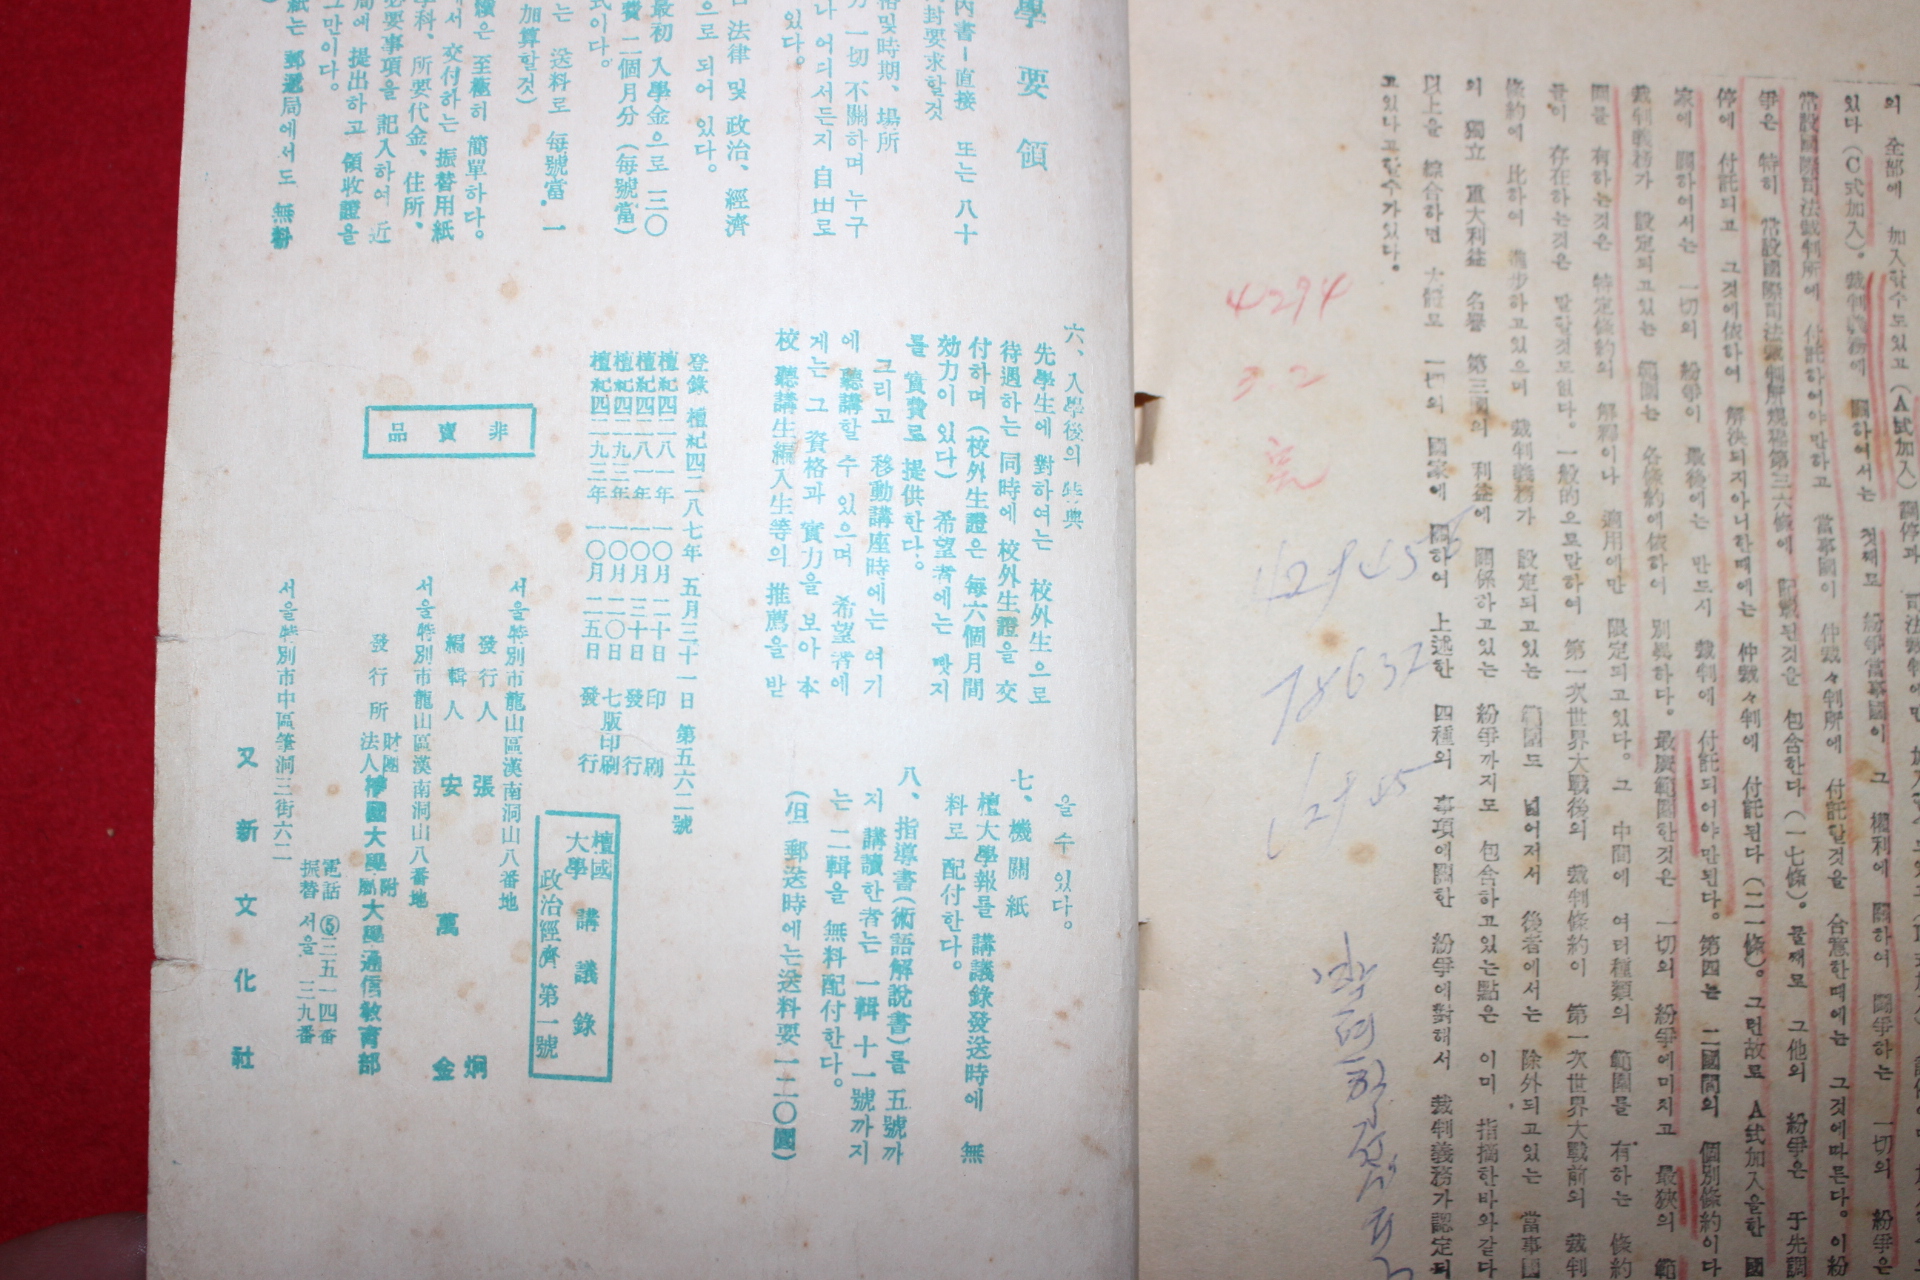 의 全部에 加入할수도있고 (A式加入) 調停과
있다 (C式加入). 裁判義務에 關하여서는 첫째로 紛爭當事國이 그 權利에 關하여 鬪爭하는 一切의 紛爭은
常設國際司法裁判所에 付託하여야만하고 當事國이 仲裁々判所에 付託할것을 合意한때에는 그것에따른다. 이紛
爭은 特히 常設國際司法裁判所規程第三六條에 記載된것을 包含한다 (一七條). 둘째로 그他의 紛爭은 于先調
停에 付託되고 그것에依하여 解決되지아니한때에는 仲裁々判에 付託된다 (二一條). 그런故로 A式加入을한 國
家에 關하여서는 一切의 紛爭이 最後에는 반드시 裁判에 付託되어야만된다. 第四는 二國間의 個別條約이다
裁判義務가 設定되고있는 範圍는 各條約에依하여 別異하다. 最廣範圍한것은 一切의 紛爭에미치고 最狹의 範
圍를 有하는것은 特定條約의 解釋이나 適用에만 限定되고있다. 그 中間에 여러種類의 範圍를 有하는 條約
들이 存在하는것은 말할것도없다. 一般的으로말하여 第一次世界大戰後의 裁判條約이 第一次世界大戰前의 裁判
條約에 比하여 進步하고있으며 裁判義務가 設定되고있는 範圍도 넓어져서 後者에서는 除外되고있는 當事國
의 獨立 重大利益 名譽 第三國의 利益에 關係하고있는 紛爭까지도 包含하고있는點은 이미 指摘한바와같다
以上을 綜合하면 大體로 一切의 國家에 關하여 上述한 四種의 事項에關한 紛爭에對해서 裁判義務가認定되
고있다고할수가있다.
4294
3.2
完
78632
學要領
內書―直接 또는 八十
封要求할것
格및時期、場所
一切 不關하며 누구
나 어디서든지 自由로
있다。
法律 및 政治、經濟
으로 되어 있다。
最初 入學金으로 三〇
費 二個月分 (每號當)
式이다。
는 送料로 每號當、一
加算할것)
積은 至極히 簡單하다。
에서 交付하는 振替用紙
學科、所要代金、住所、
必要事項을 記入하여 近
局에 提出하고 領收證을
그만이다。
紙는 郵遞局에서도 無料
六、入學後의 特典
先學生에 對하여는 校外生으로
待遇하는 同時에 校外生證을 交
付하며 (校外生證은 每六個月間
効力이 있다) 希望者에는 뺏지
를 實費로 提供한다。
그리고 移動講座時에는 여기
에 聽講할 수 있으며 希望者에
게는 그 資格과 實力을 보아 本
校 聽講生編入生等의 推薦을 받
을 수 있다。
七、機關紙
檀大學報를 講議錄發送時에 無
料로 配付한다。
八、指導書(術語解說書)를 五號까
지 講讀한者는 一輯 十一號까지
는 二輯을 無料配付한다。
(但 郵送時에는送料要一二〇圜)
登錄 檀紀四二八七年 五月三十一日 第五六二號
檀紀四二八一年 一〇月二十日 印刷
檀紀四二八一年 一〇月三十日 發行
檀紀四二九三年 一〇月二〇日 七版印刷
檀紀四二九三年 一〇月二五日 發行
非賣品
檀國大學 講議錄
政治經濟 第一號
서울特別市龍山區漢南洞山八番地
發行人 張炯
編輯人 安萬金
서울特別市龍山區漢南洞山八番地
發行所 財團法人 檀國大學 附屬 大學通信敎育部
電話 ⑤三五一四番
振替 서울 三九番
서울特別市中區筆洞三街六二
又新文化社